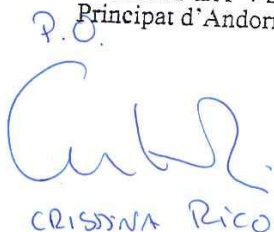 Principat d'Andorr
P.O.
CRISTINA RICO